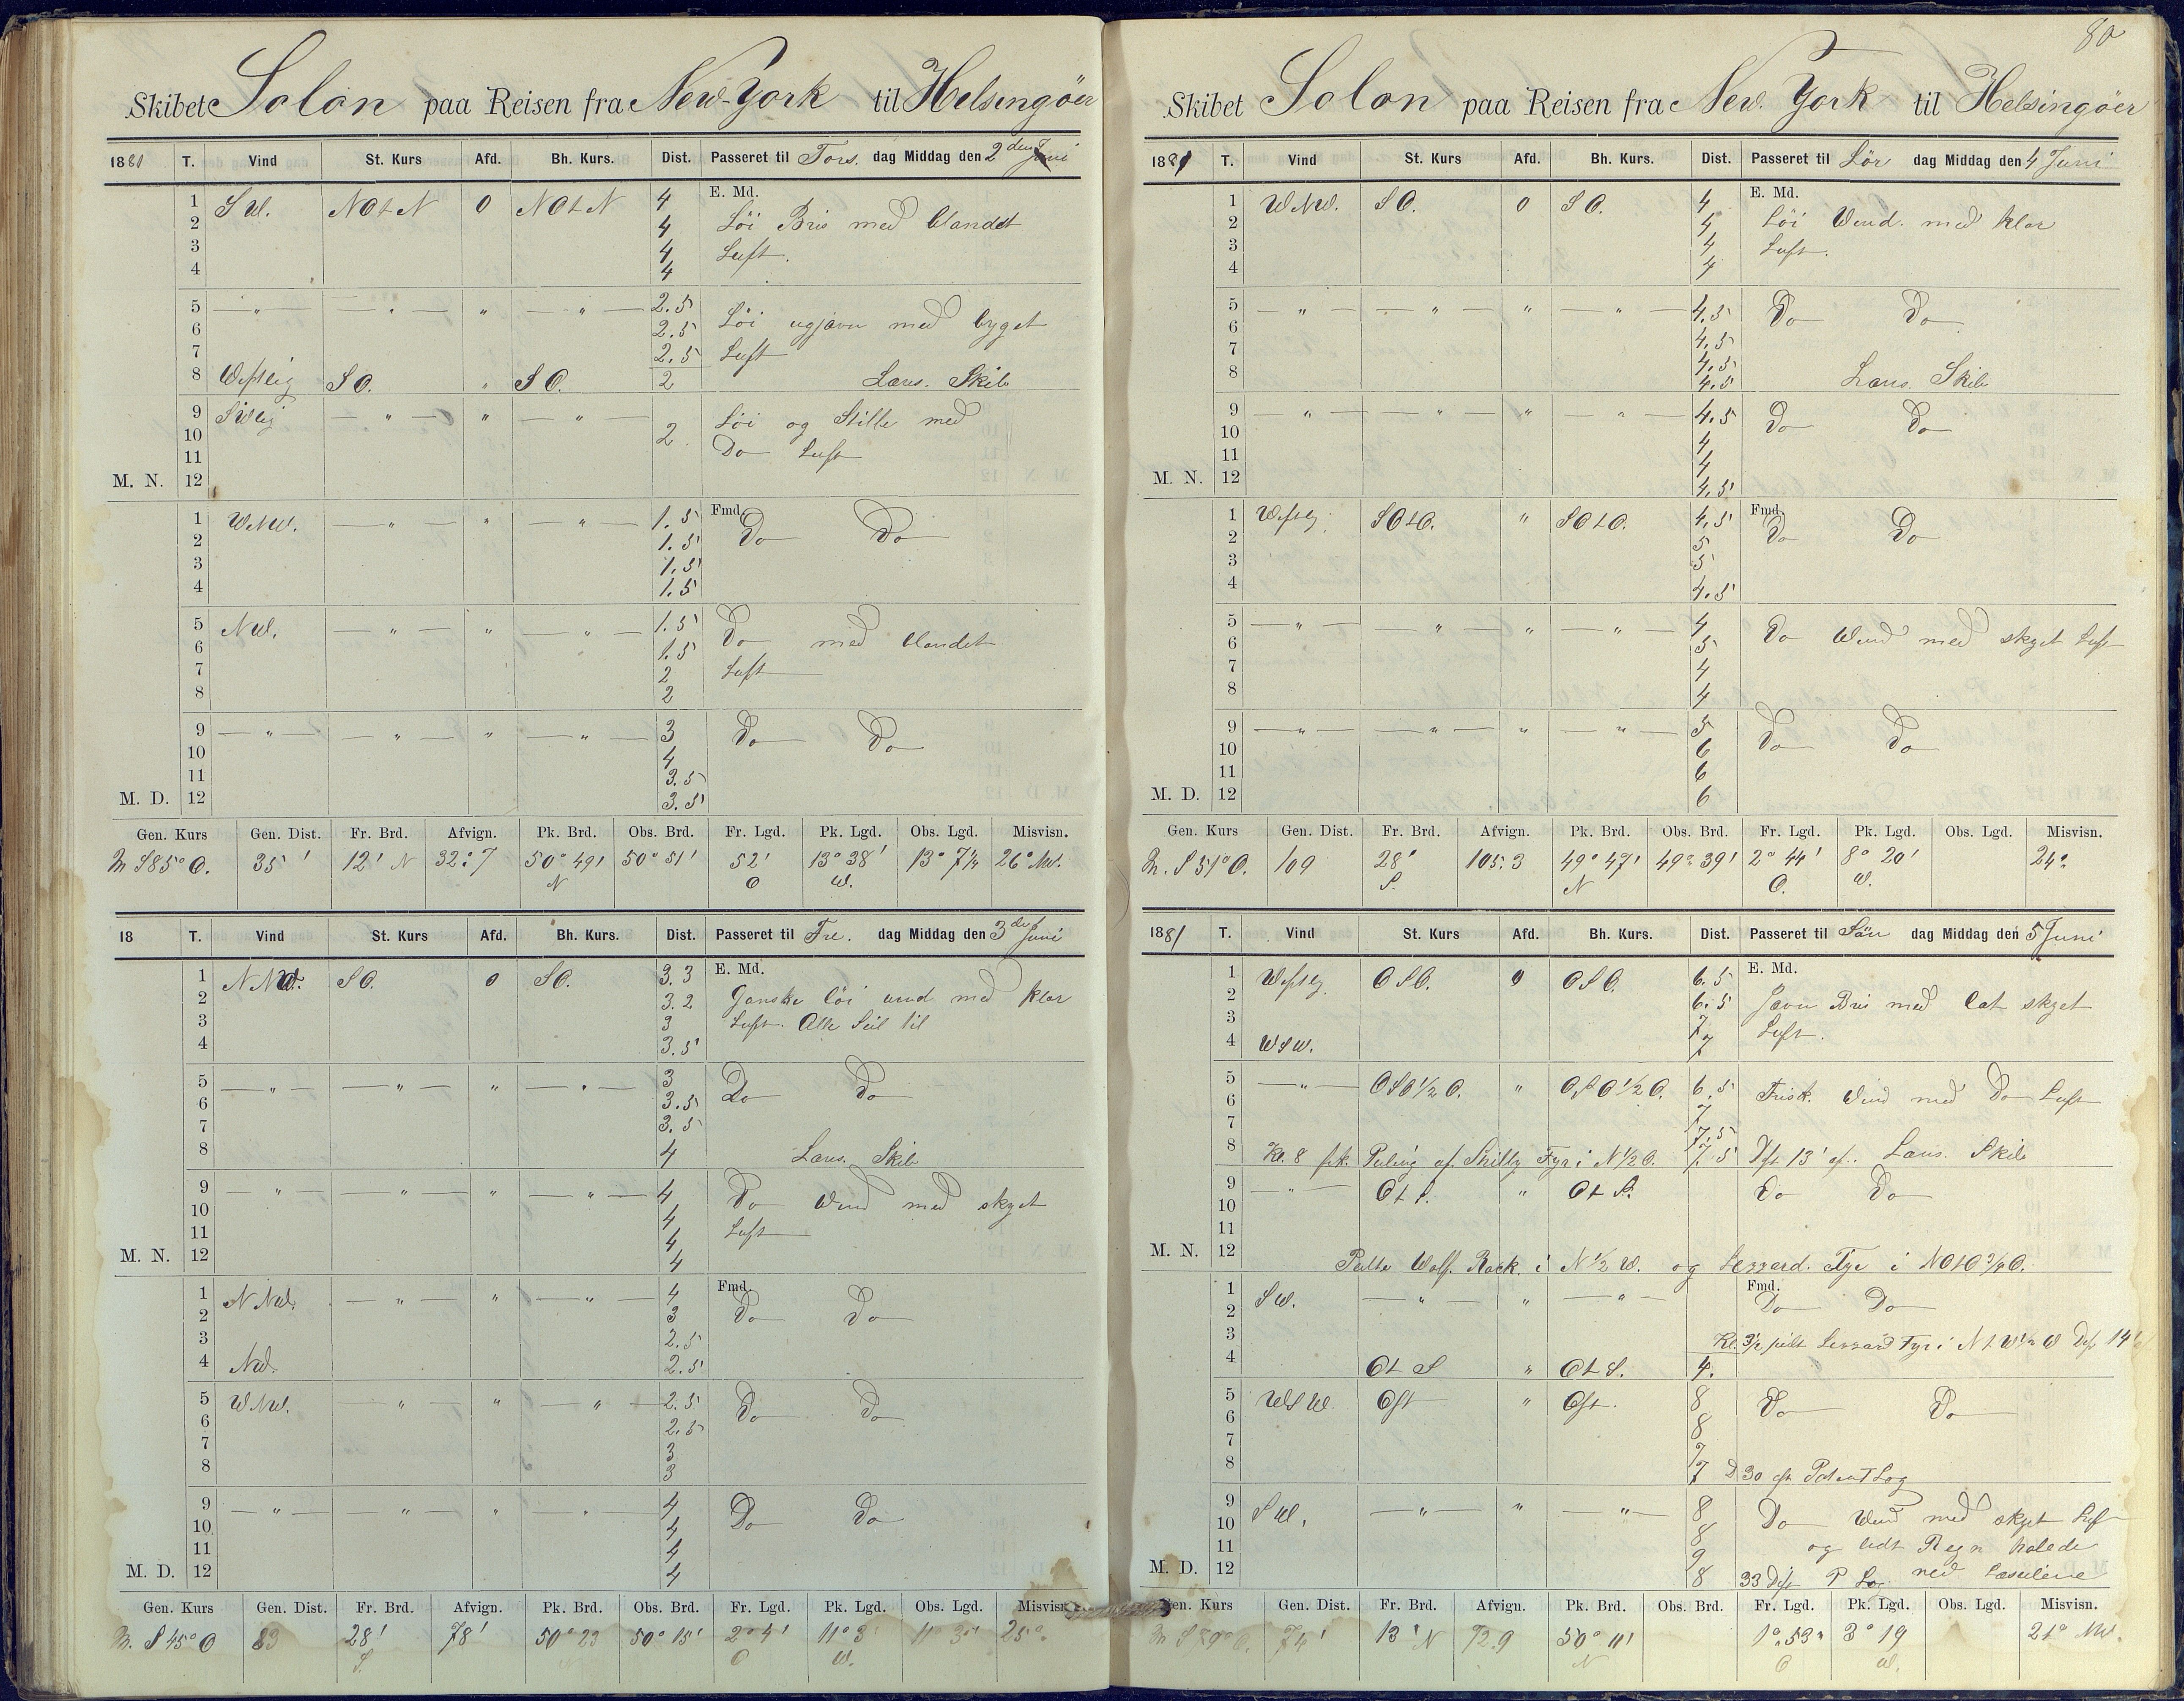 80
Skibet Solon paa Reisen fra New-York til Helsingöer
1881 T. Vind St. Kurs Afd. Bh. Kurs. Dist. Passeret til Tors. dag Middag den 2den Juni
1 SW. NOtN 0 NOtN 4 E. Md.
2 4 Löi Bris med blandet
3 4 Luft.
4 4
5 — " — — " — " — " — 2.5
6 2.5 Löi ugjævn med byget
7 2.5 Luft
8 Westlig SO. " SO. 2 Læns. Skib
9 SWlig — " — " — " — Löi og Stille med
10 2 Do Luft
11
M. N. 12
1 WNW. — " — " — " — 1.5 Fmd.
2 1.5 Do Do
3 1.5
4 1.5
5 NW. — " — " — " — 1.5
6 1.5 Do med blandet
7 2 Luft
8 2
9 — " — — " — " — " — 3 Do Do
10 4
11 3.5
M. D. 12 3.5
Gen. Kurs Gen. Dist. Fr. Brd. Afvign. Pk. Brd. Obs. Brd. Fr. Lgd. Pk. Lgd. Obs. Lgd. Misvisn.
m S85°O. 35' 12' N 32:7 50° 49' 50° 51' 52' 13° 38' 13° 7 1/4 26° NW.
N O W.
18 T. Vind St. Kurs Afd. Bh. Kurs. Dist. Passeret til Fre. dag Middag den 3die Juni
1 NNW. SO. 0 SO. 3.3 E. Md.
2 3.2 Ganske löi vind med klar
3 3 Luft. Alle Seil til
4 3.5
5 — " — — " — " — " — 3
6 3.5 Do Do
7 3.5
8 4 Læns. Skib
9 — " — — " — " — " — 4 Do Wind med skyet
10 4
11 4 Luft
M. N. 12 4
1 NNW. — " — " — " — 4 Fmd.
2 3 Do Do
3 2.5
4 NW. 2.5
5 WNW. — " — " — " — 2.5
6 2.5 Do Do
7 3
8 3
9 — " — — " — " — " — 4
10 4 Do Do
11 4
M. D. 12 4
Gen. Kurs Gen. Dist. Fr. Brd. Afvign. Pk. Brd. Obs. Brd. Fr. Lgd. Pk. Lgd. Obs. Lgd. Misvisn.
m. S 45° O 83 28' 78' 50° 23 50° 15' 2° 4' 11° 3' 11° 3 25°
S. N O W.
Skibet Solon paa Reisen fra New. York til Helsingöer
1881 T. Vind St. Kurs Afd. Bh. Kurs. Dist. Passeret til Lör dag Middag den 4 Juni
1 WNW. SO. 0 SO. 4 E. Md.
2 4 Löi Vind. med klar
3 4 Luft.
4 4
5 — " — — " — " — " — 4.5 Do Do
6
7 4.5
8 4.5 Læns. Skib
4.5
9 — " — — " — " — " — 4.5 Do Do
10 4
11 4
M. N. 12 4.5
1 Westlig SOtO. " SOtO. 4.5 Fmd.
2 5 Do Do
3 5
4 4.5
5 — " — " " — " — 4
6 5 Do Wind med skyet Luft
7 4
8 4
9 — " — — " — " — " — 5
10 6 Do Do
11 6
M. D. 12 6
Gen. Kurs Gen. Dist. Fr. Brd. Afvign. Pk. Brd. Obs. Brd. Fr. Lgd. Pk. Lgd. Obs. Lgd. Misvisn.
m. S 51° O. 109 28' 105:3 49° 47' 49° 39' 2° 44' 8° 20' 24°
S. N O. W.
1881 T. Vind St. Kurs Afd. Bh. Kurs. Dist. Passeret til Sön dag Middag den 5 Juni
1 Westlig OSO. 0 OSO. 6.5 E. Md.
2 6.5 Jævn Bris med let skyet
3 7 Luft.
4 WSW. 7
5 — " — OSO 1/2 O. " OSO 1/2 O. 6.5
6 7 Frisk. Wind med Do Luft
7 7.5
8 Kl. 8 fik. Peiling af. Skilly Fyr i N 1/2 O. 7.5 Dst 13' af. Læns. Skib
9 — " — OtS. " OtS. Do Do
10
11
M. N. 12 Peilte Wolf. Rock. i N 1/2 W. og Lezzard. Fyr i NOtO 3/4 O.
1 SW. — " — " — " — Fmd.
2 Do Do
3 Kl. 3 1/2 peilt Lezzard Fyr i NtW 1/2 W Dst 14'
4 OtS " OtS. 4.
5 WSW Ost " Ost. 8
6 8 Do Do
7 7
8 7 D 30 ef. Patent Log
9 SW. — " — " — " — 8
10 8 Do Wind med skyet Luft
11 9 og lidt Regn halede
M. D. 12 8 33 Dist P Log ned Læseilene
Gen. Kurs Gen. Dist. Fr. Brd. Afvign. Pk. Brd. Obs. Brd. Fr. Lgd. Pk. Lgd. Obs. Lgd. Misvisn.
m S 79° O. 74' 13' N 72.9 50° 11' 1° 53" 3° 19 21° NW.
N O W.